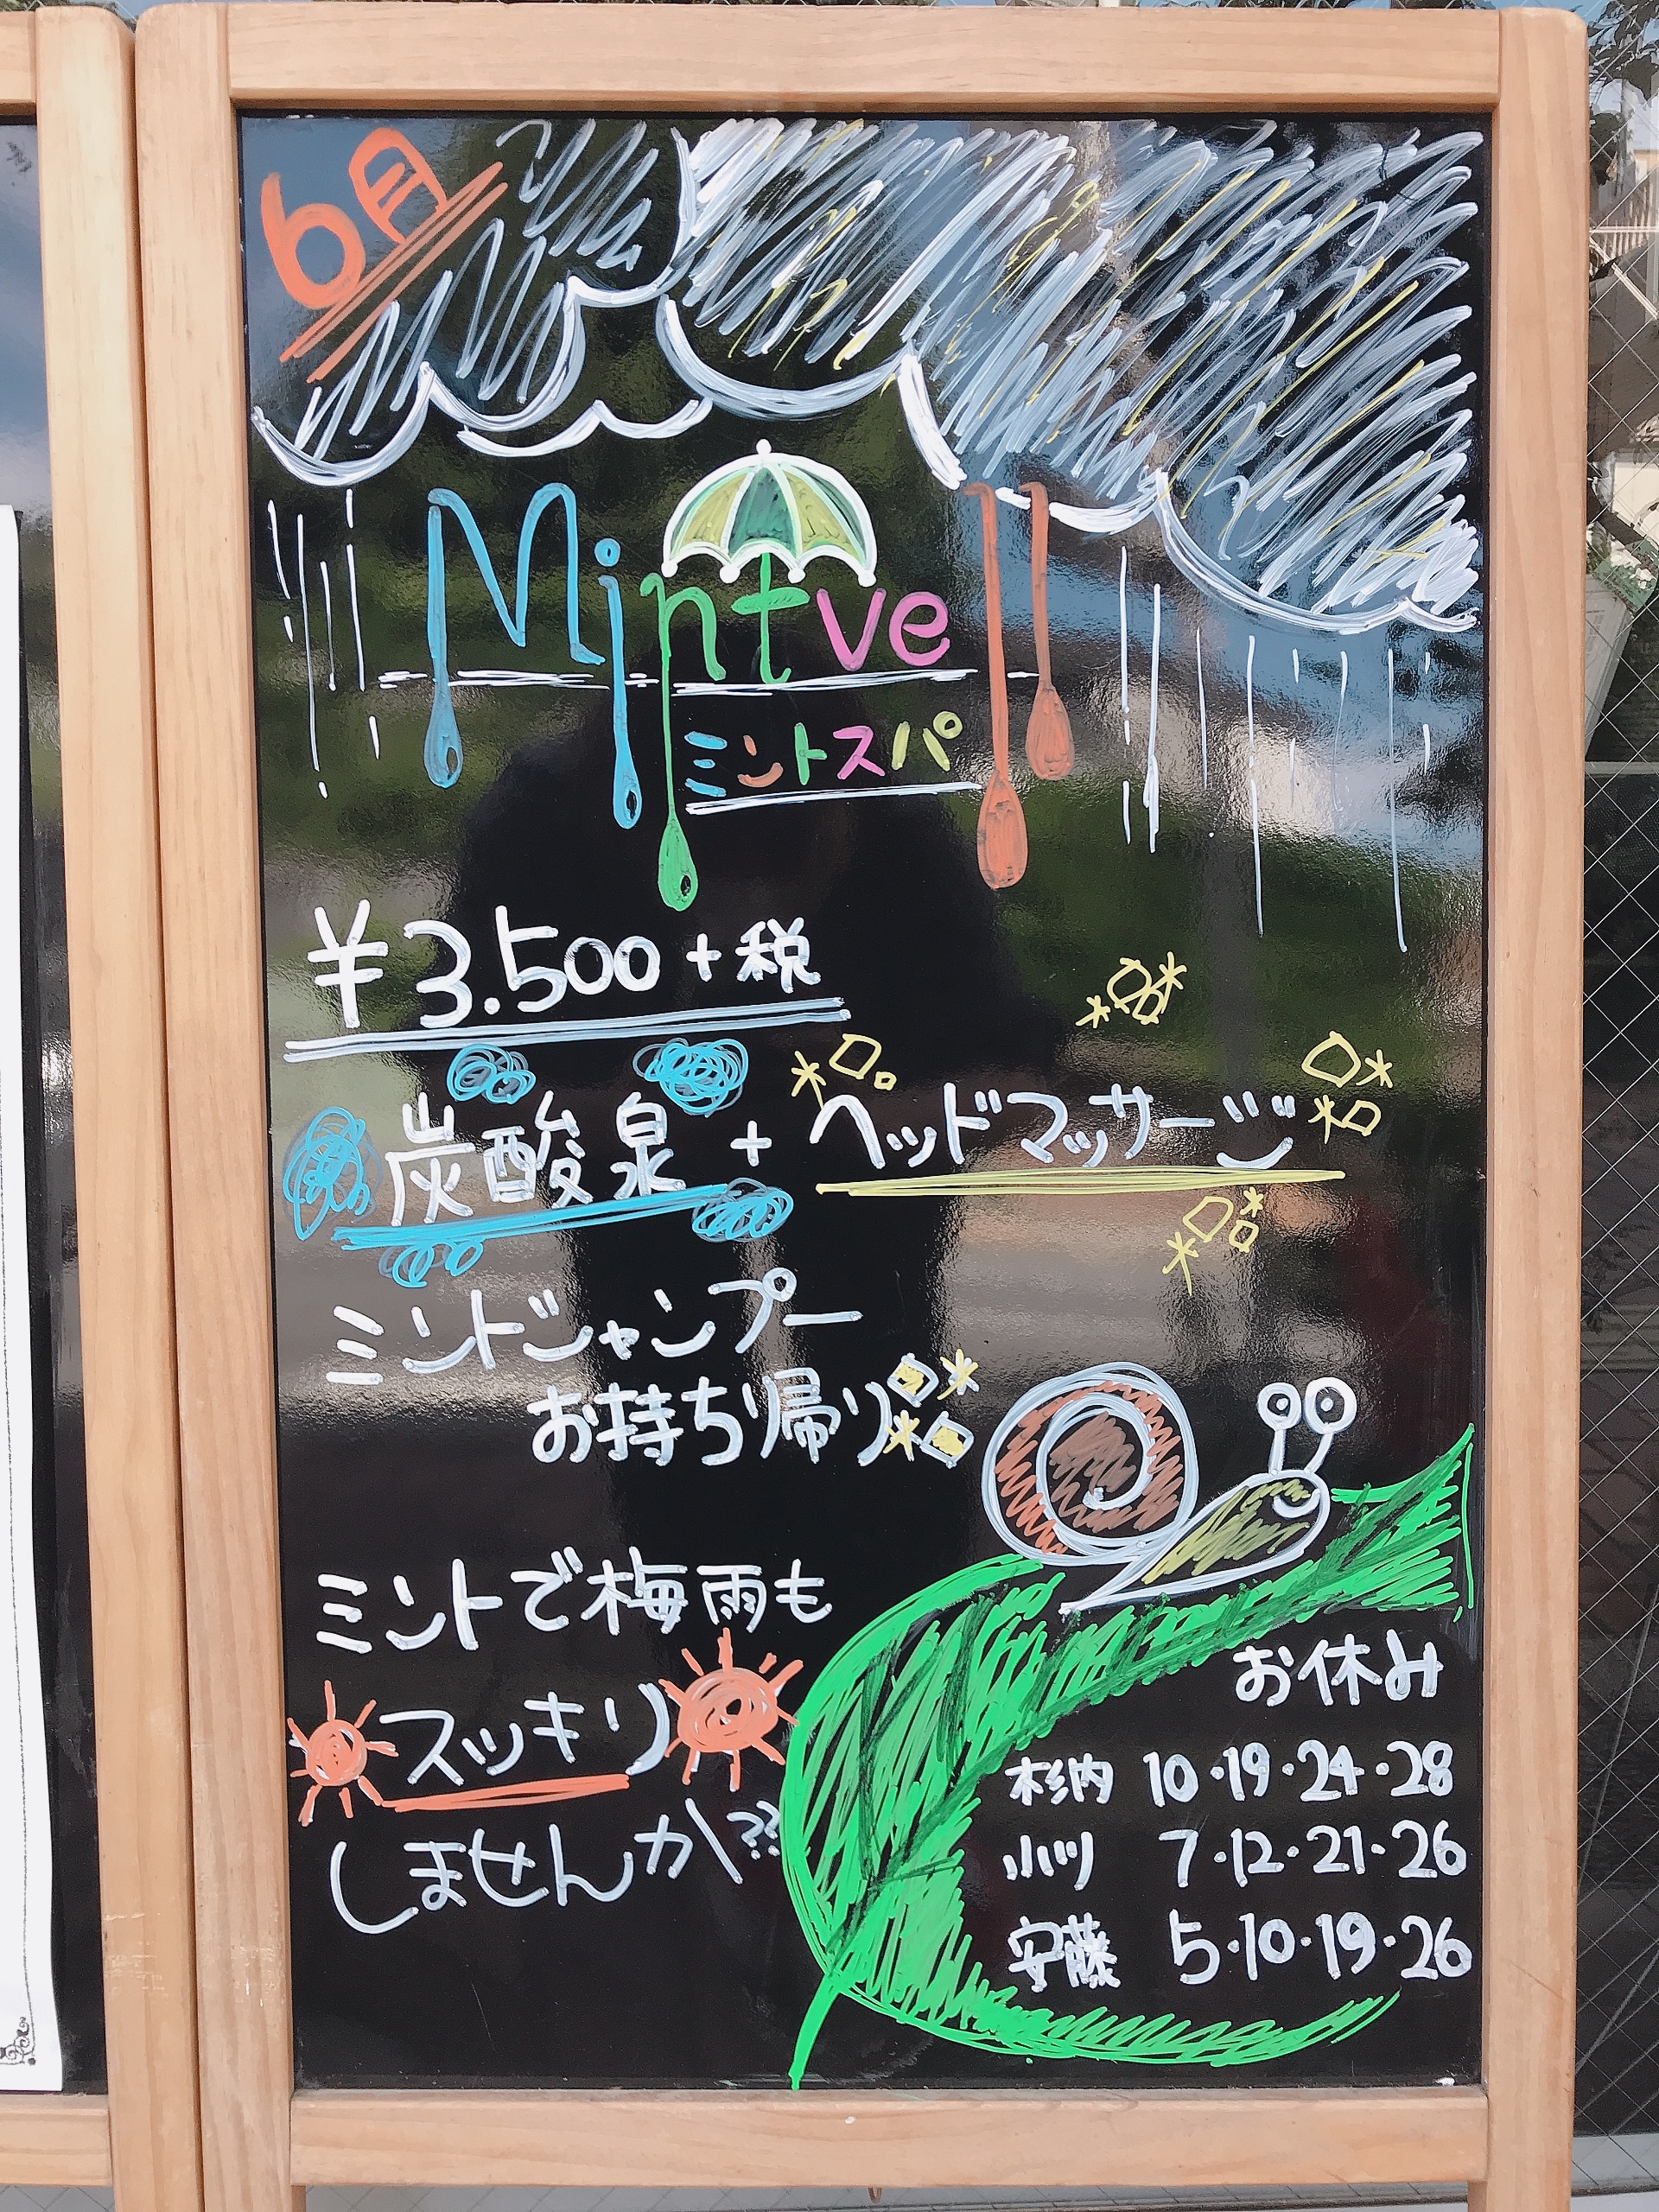 6月
Mintve!!
ミントスパ
¥3.500+税
炭酸泉+ヘッドマッサージ
ミントシャンプー
お持ち帰り
ミントで梅雨も
スッキリ
しませんか??
お休み
杉内 10・19・24・28
小川 7・12・21・26
安藤 5・10・19・26